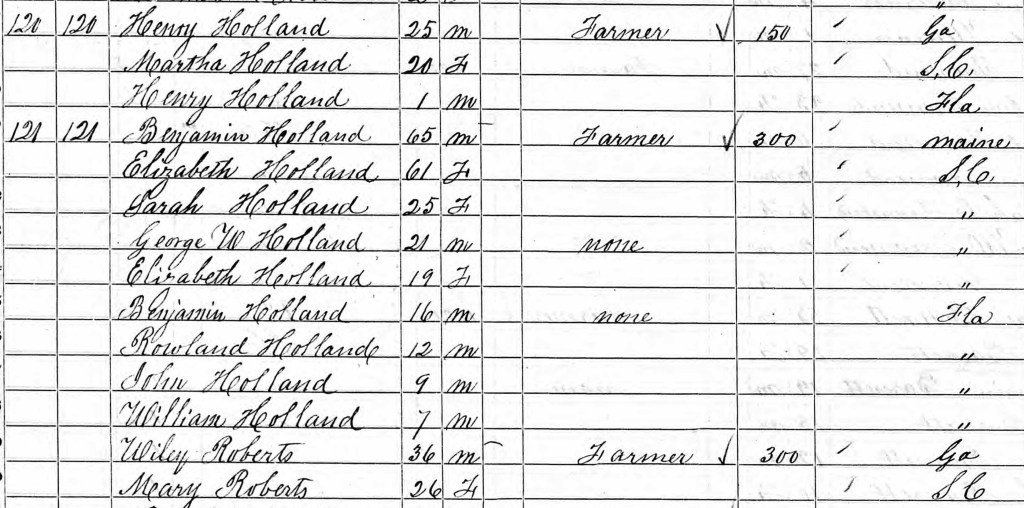 120 120 Henry Holland 25 m Farmer ✓ 150 Ga
Martha Holland 20 F S.C.
Henry Holland 1 m Fla
121 121 Benjamin Holland 65 m Farmer ✓ 300 maine
Elizabeth Holland 61 F S.C
Sarah Holland 25 F "
George W Holland 21 m none "
Elizabeth Holland 19 F "
Benjamin Holland 16 m none Fla
Rowland Holland 12 m "
John Holland 9 m "
William Holland 7 m "
Wiley Roberts 36 m Farmer ✓ 300 Ga
Mary Roberts 26 F S.C